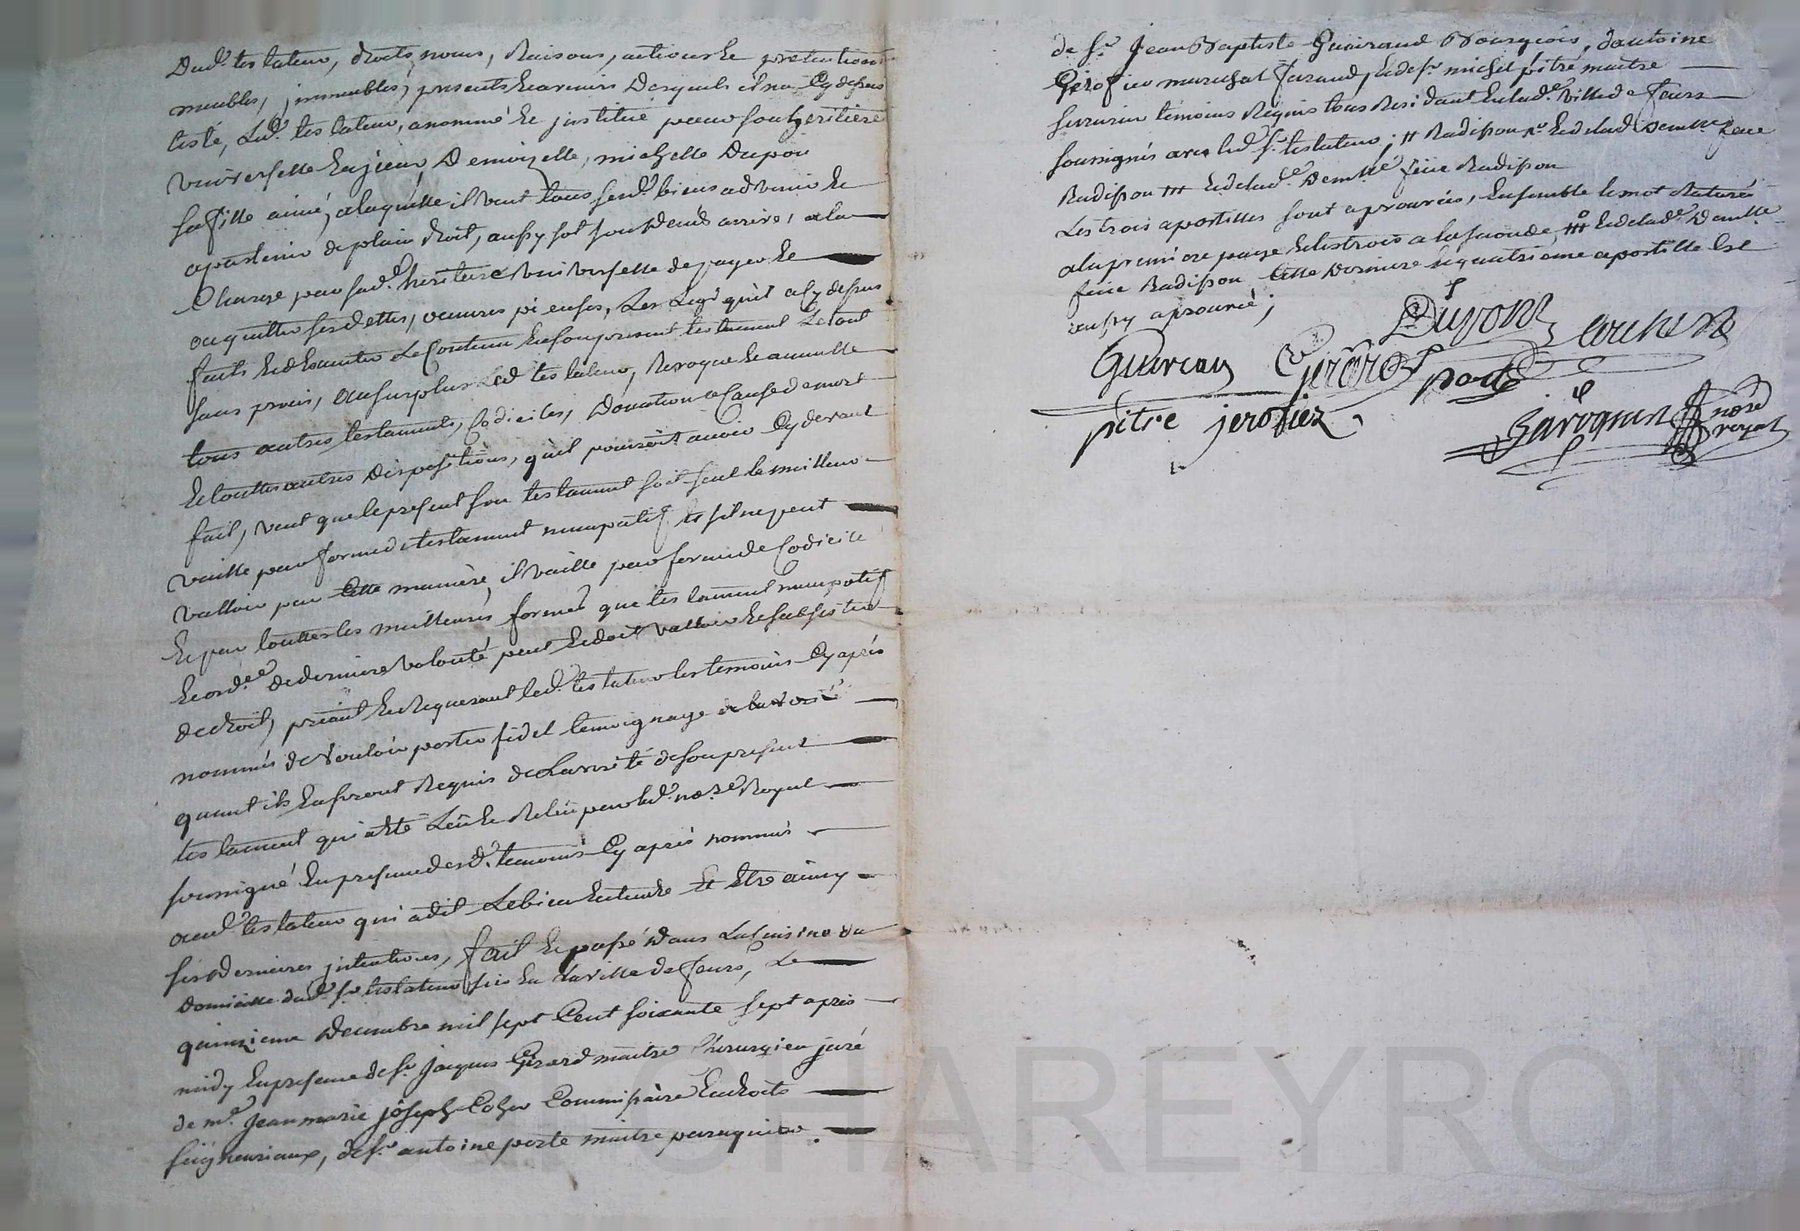 Dud. testateur, droits, noms, Raisons, actions & pretentions
meubles, immeubles, presents & avenirs Desquels il n'a Cy dessus
testé, Led. testateur, a nommé & institué pour son heritiere
universelle Demoizelle, michelle Dupon
sa fille ainé, a laquelle il veut tous sesd. biens advenir &
apartenir de plain droit, aussy sot son Deceds arrivé, a la
Charge par sad. heritiere universelle de payer &
acquitter ses dettes, œuvres pi euses, Les Legs qu'il a Cy dessus
faits & dexecuter Le Contenu En son present testament Le tout
sans procès, au surplus Led testateur, Revoque & annulle
tous autres testaments, Codiciles, Donation a Cause de mort
& touttes autres Dispositions, qu'il pouroit avoir Cy devant
fait, veut que le present son testament soit seul le meilleur
vaille par forme de testament nuncupatif et s'il ne peut
valloir par Cette maniere, il vaille par forme de Codicile
& par touttes les meilleures formes que testament nuncupatif
& ord.ce de derniere volonté peut & doit valloir & subsister
de droit, priant & Requerant led. testateur les temoins Cy après
nommés de vouloir porter fidel temoignage de la verité
quant ils En seront Requis de La verité de son present
testament qui a Eté Leü & Releü par led. no.re Royal
soussigné En presence desd. temoins Cy après nommés
aud. testateur qui a dit Le bien Entendre Et Etre ainsy
ses Dernieres intentions, fait & passé Dans La Cuisine du
Domicille dud. sr testateur sis En la ville de feurs, Le
quinzieme Decembre mil sept Cent soixante sept après
midy En presence de sr. Jacques Gerard maitre Chirurgien juré
de me. Jean marie joseph Commissaire En droits
seigneuriaux, de sr. antoine porte maitre peruquier
de sr. Jean Baptiste Bourgeois, dantoine
marechal ferand, & de sr. michel pitre maitre
serrurier temoins Requis tous Residant En lad. ville de feurs
soussignés avec led. sr. testateur; # Radisson & de lad. Demlle feue
Radisson ### & de lad.e Demlle feüe Radisson
Les trois apostilles sont aprouvées, Ensemble le mot Raturé
a la premiere page & les trois a la seconde, ### & de lad.e Demlle
feüe Radisson Cette Derniere & quatrieme apostille Est
aussy aprouvé;
Dupont
porte
pitre jerofiez
nore
royal
CHAREYRON